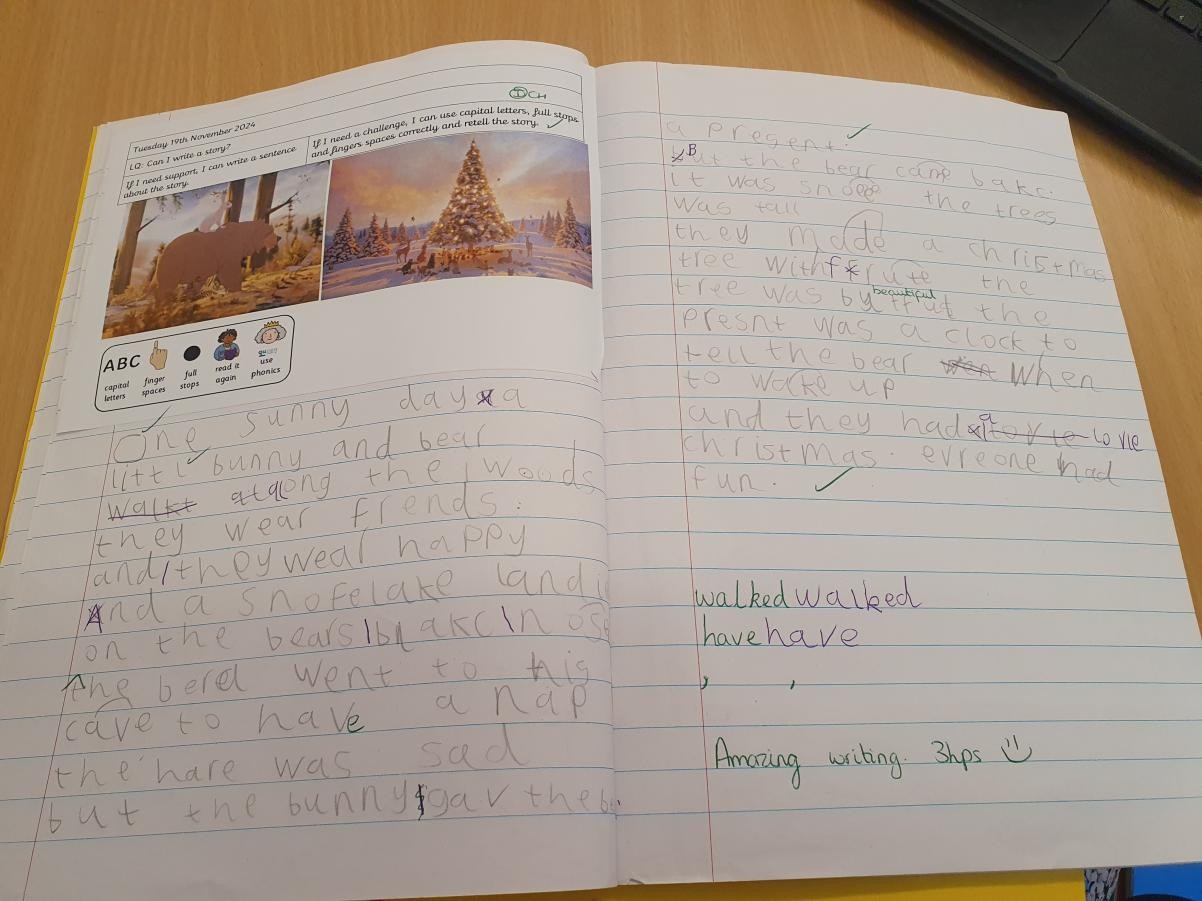 ⒾCH
Tuesday 19th November 2024
LQ: Can I write a story?
If I need support, I can write a sentence
about the story.
If I need a challenge, I can use capital letters, full stops
and fingers spaces correctly and retell the story.
ABC
capital
letters
finger
spaces
full
stops
read it
again
use
phonics
One sunny day a
littl bunny and bear
walkt along the woods
they wear frends.
and they wear happy
And a snofelake land
on the bears
the berd went to his
cave to have a nap
the hare was sad
but the bunny gav the
a present.
But the bear came bakc.
it was the trees
was tall
they made a christmas
tree with frute the
tree was beautiful the
presnt was a clock to
tell the bear wen When
to wake up
and they had a lovle
christmas. evreone had
fun.
walked walked
have have
, ,
Amazing writing. 3hps